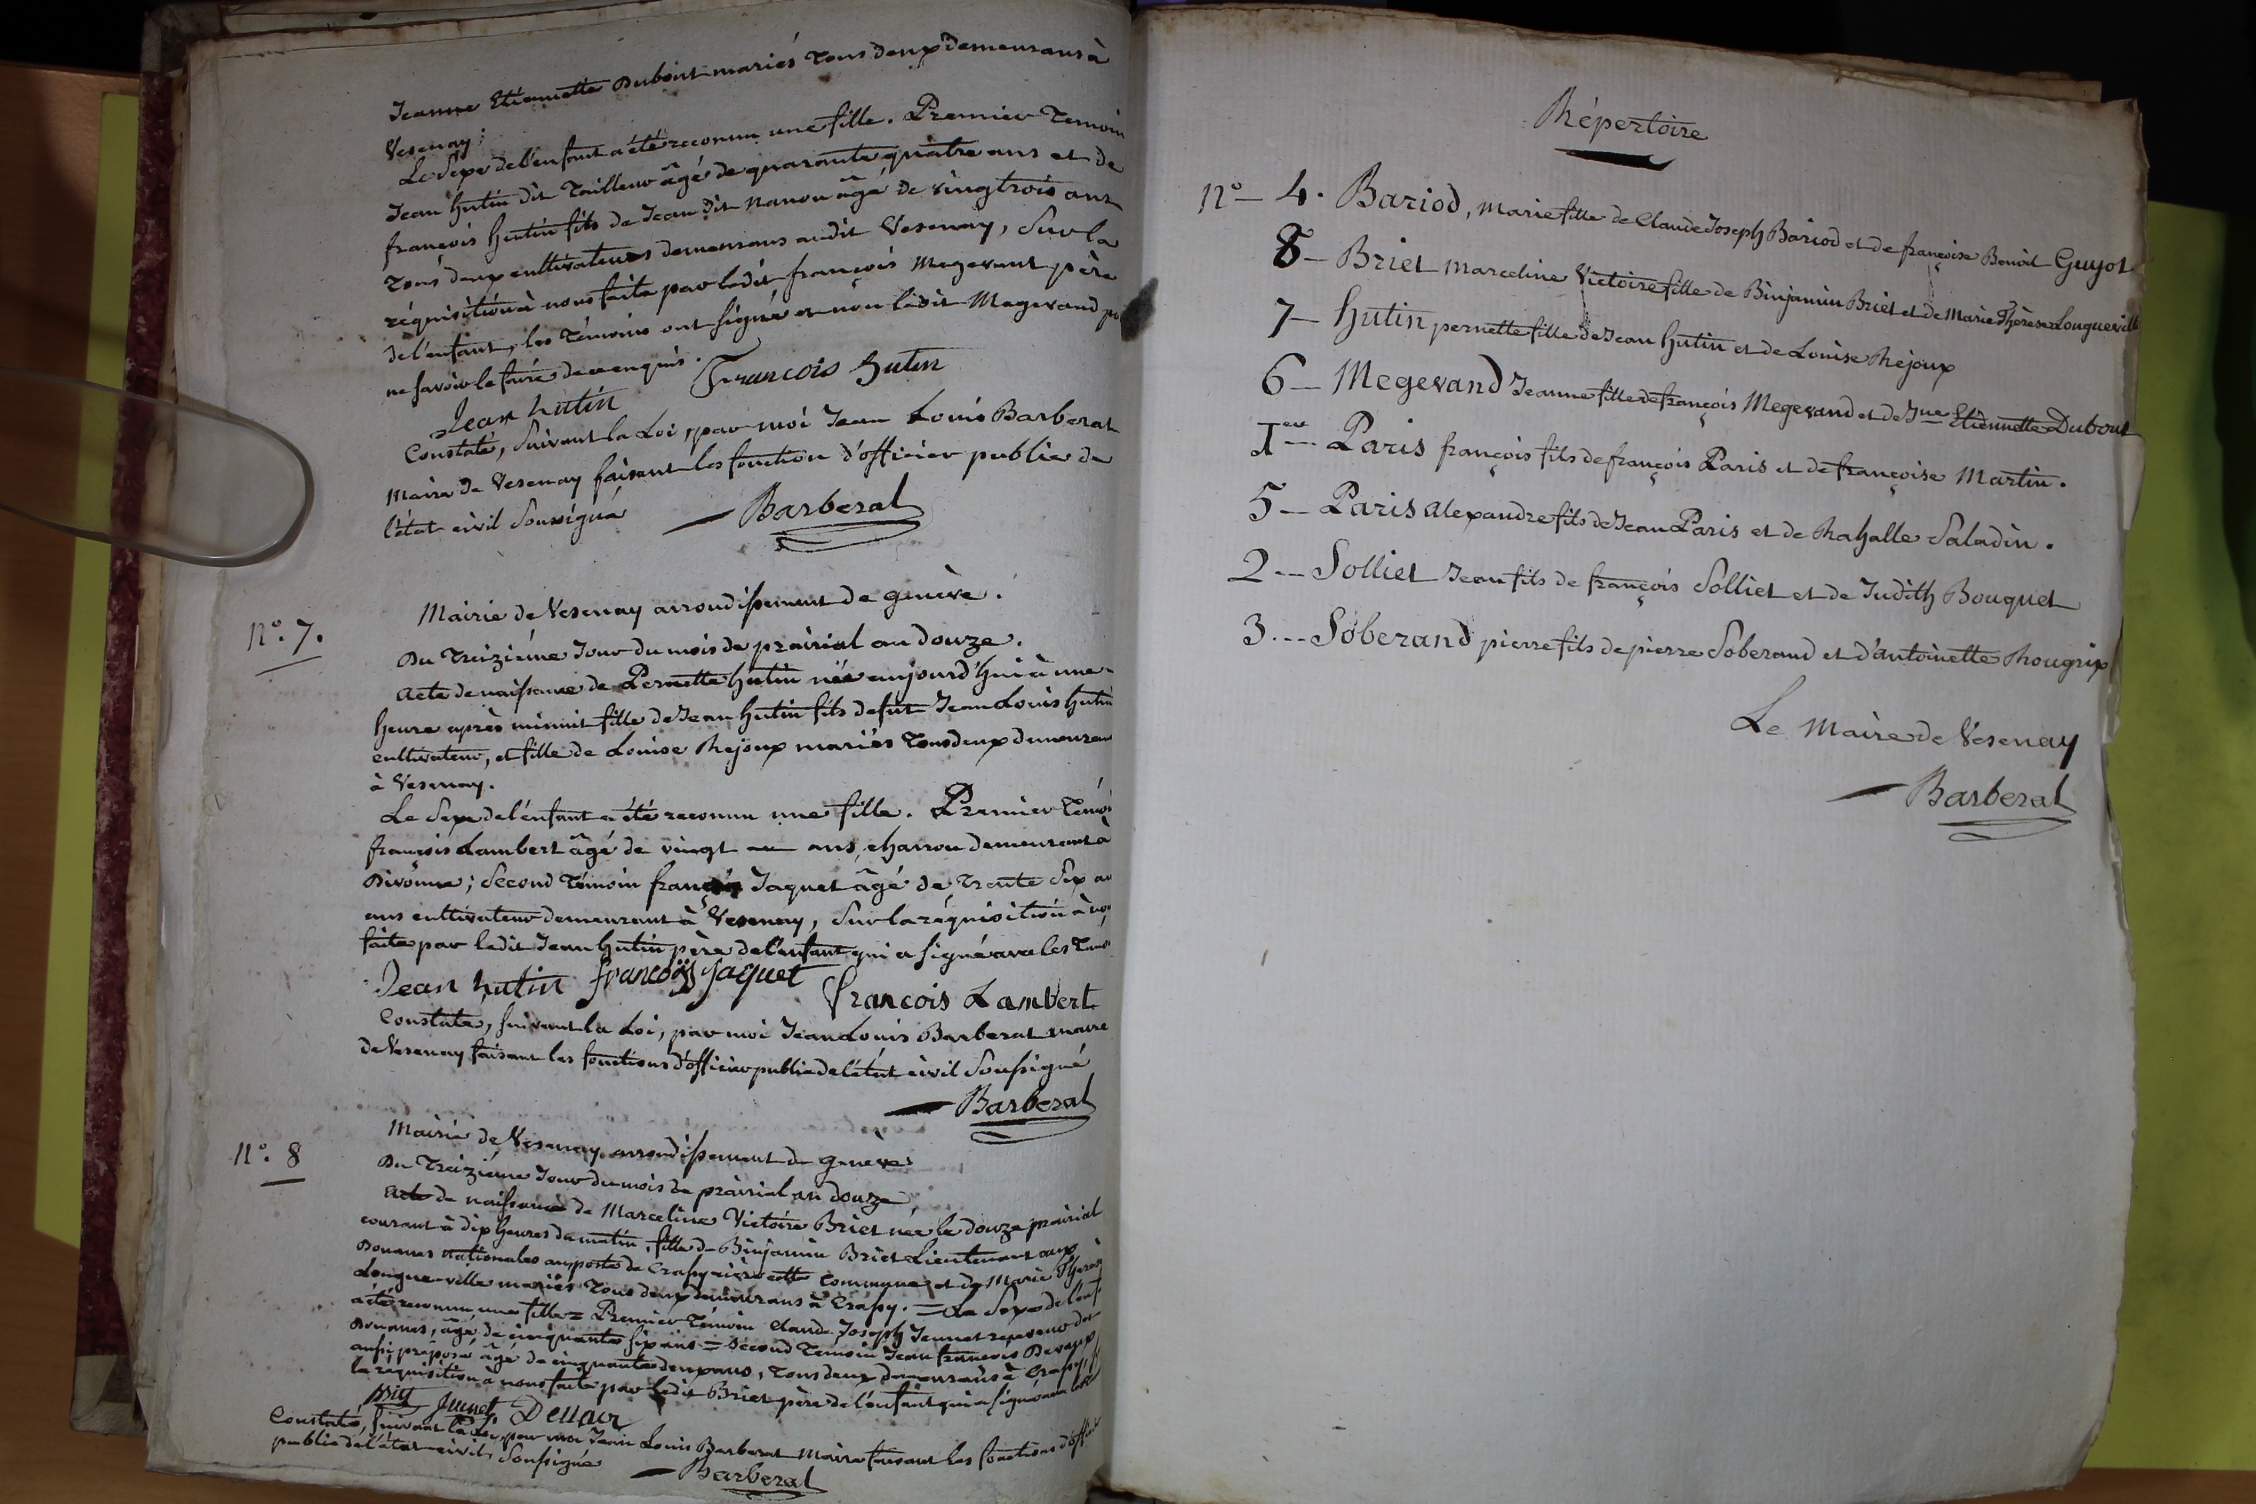 Jeanne Etiennette Dubout mariés Tous deux demeurans à
Vesenay;
Le Sexe de l'enfant a été reconnu une fille. Premier Temoin
Jean hutin dit Tailleur âgé de quarante quatre ans et de
françois hutin fils de Jean dit nanou âgé de vingtrois ans
Tous deux cultivateurs demeurans audit Vesenay, Sur la
réquisition à nous faite par ledit françois Megevant père
de l'enfant, les Témoins ont signé et non ledit Megevand
ne savoir le faire de ce enquis.
Jean hutin François Hutin
Constaté, Suivant la Loi, par moi Jean Louis Barberat
Maire de Vesenay faisant les fonction d'officier public de
l'état civil Soussigné
Barberat
N.º 7.
Mairie de Vesenay arrondissement de genève.
Du Treizième Jour du mois de prairial an douze.
Acte de naissance de Pernette hutin née aujourd'hui à une
heure après minuit fille de Jean hutin fils de fut Jean Louis hutin
cultivateur, et fille de Louise Rejoux mariés Tous deux demeurant
à Vesenay.
Le Sexe de l'enfant a été reconnu une fille. Premier Témoi
françois Lambert âgé de vingt un ans, charron demeurant à
Divonne; Second Témoin françois Jaquet âgé de Trente Six an
ans cultivateur demeurant à Vesenay, Sur la réquisition à
faite par ledit Jean hutin père de l'enfant qui a signé avec les
Jean hutin françois jaquet
François Lambert
Constaté, suivant la Loi, par moi Jean Louis Barberat maire
de Vesenay faisant les fonctions d'officier public de l'état civil Soussigné
Barberat
N.º 8
Mairie de Vesenay arrondissement de genève
Du Treizième Jour du mois de prairial an douze
Acte de naissance de Marceline Victoire Briet née le douze prairial
courant à dix heures du matin, fille de Binjamin Briet Lieutenant aux
Douanes nationales au poste de Crassy rière cette commune, et de Marie Therese
Longueville mariés Tous deux demeurans à Crassy. = Le Sexe de l'enf.
a été reconnu une fille = Premier Témoin Claude Joseph Jeunet receveur des
Douanes, âgé de cinquante six ans = Second Temoin Jean francois Devaux
aussi préposé âgé de cinquante deux ans, Tous deux demeurans à Crassy,
la réquisition à nous faite par ledit Briet père de l'enfant qui a signé avec
Jeunet
Constaté, Suivant la Loi, par moi Jean Louis Barberat Maire faisant les fonctions d'officier
public de l'état civil, Soussigné
Barberat
Répertoire
Nº — 4. Bariod, Marie fille de Claude Joseph Bariod et de françoise Benoit Guyot
8 — Briet Marceline Victoire fille de Binjamin Briet et de Marie Thérese Longueville
7 — Hutin pernette fille de Jean Hutin et de Louise Rejoux
6 — Megevand Jeanne fille de françois Megevand et de Jne Etiennette Dubout
1er — Paris françois fils de françois Paris et de françoise Martin.
5 — Paris Alexandre fils de Jean Paris et de Rahalle Saladin.
2 — Solliet Jean fils de françois Solliet et de Judith Bouquet
3 — Soberand pierre fils de pierre Soberand et d'antoinette Rougrix
Le Maire de Vesenay
Barberat